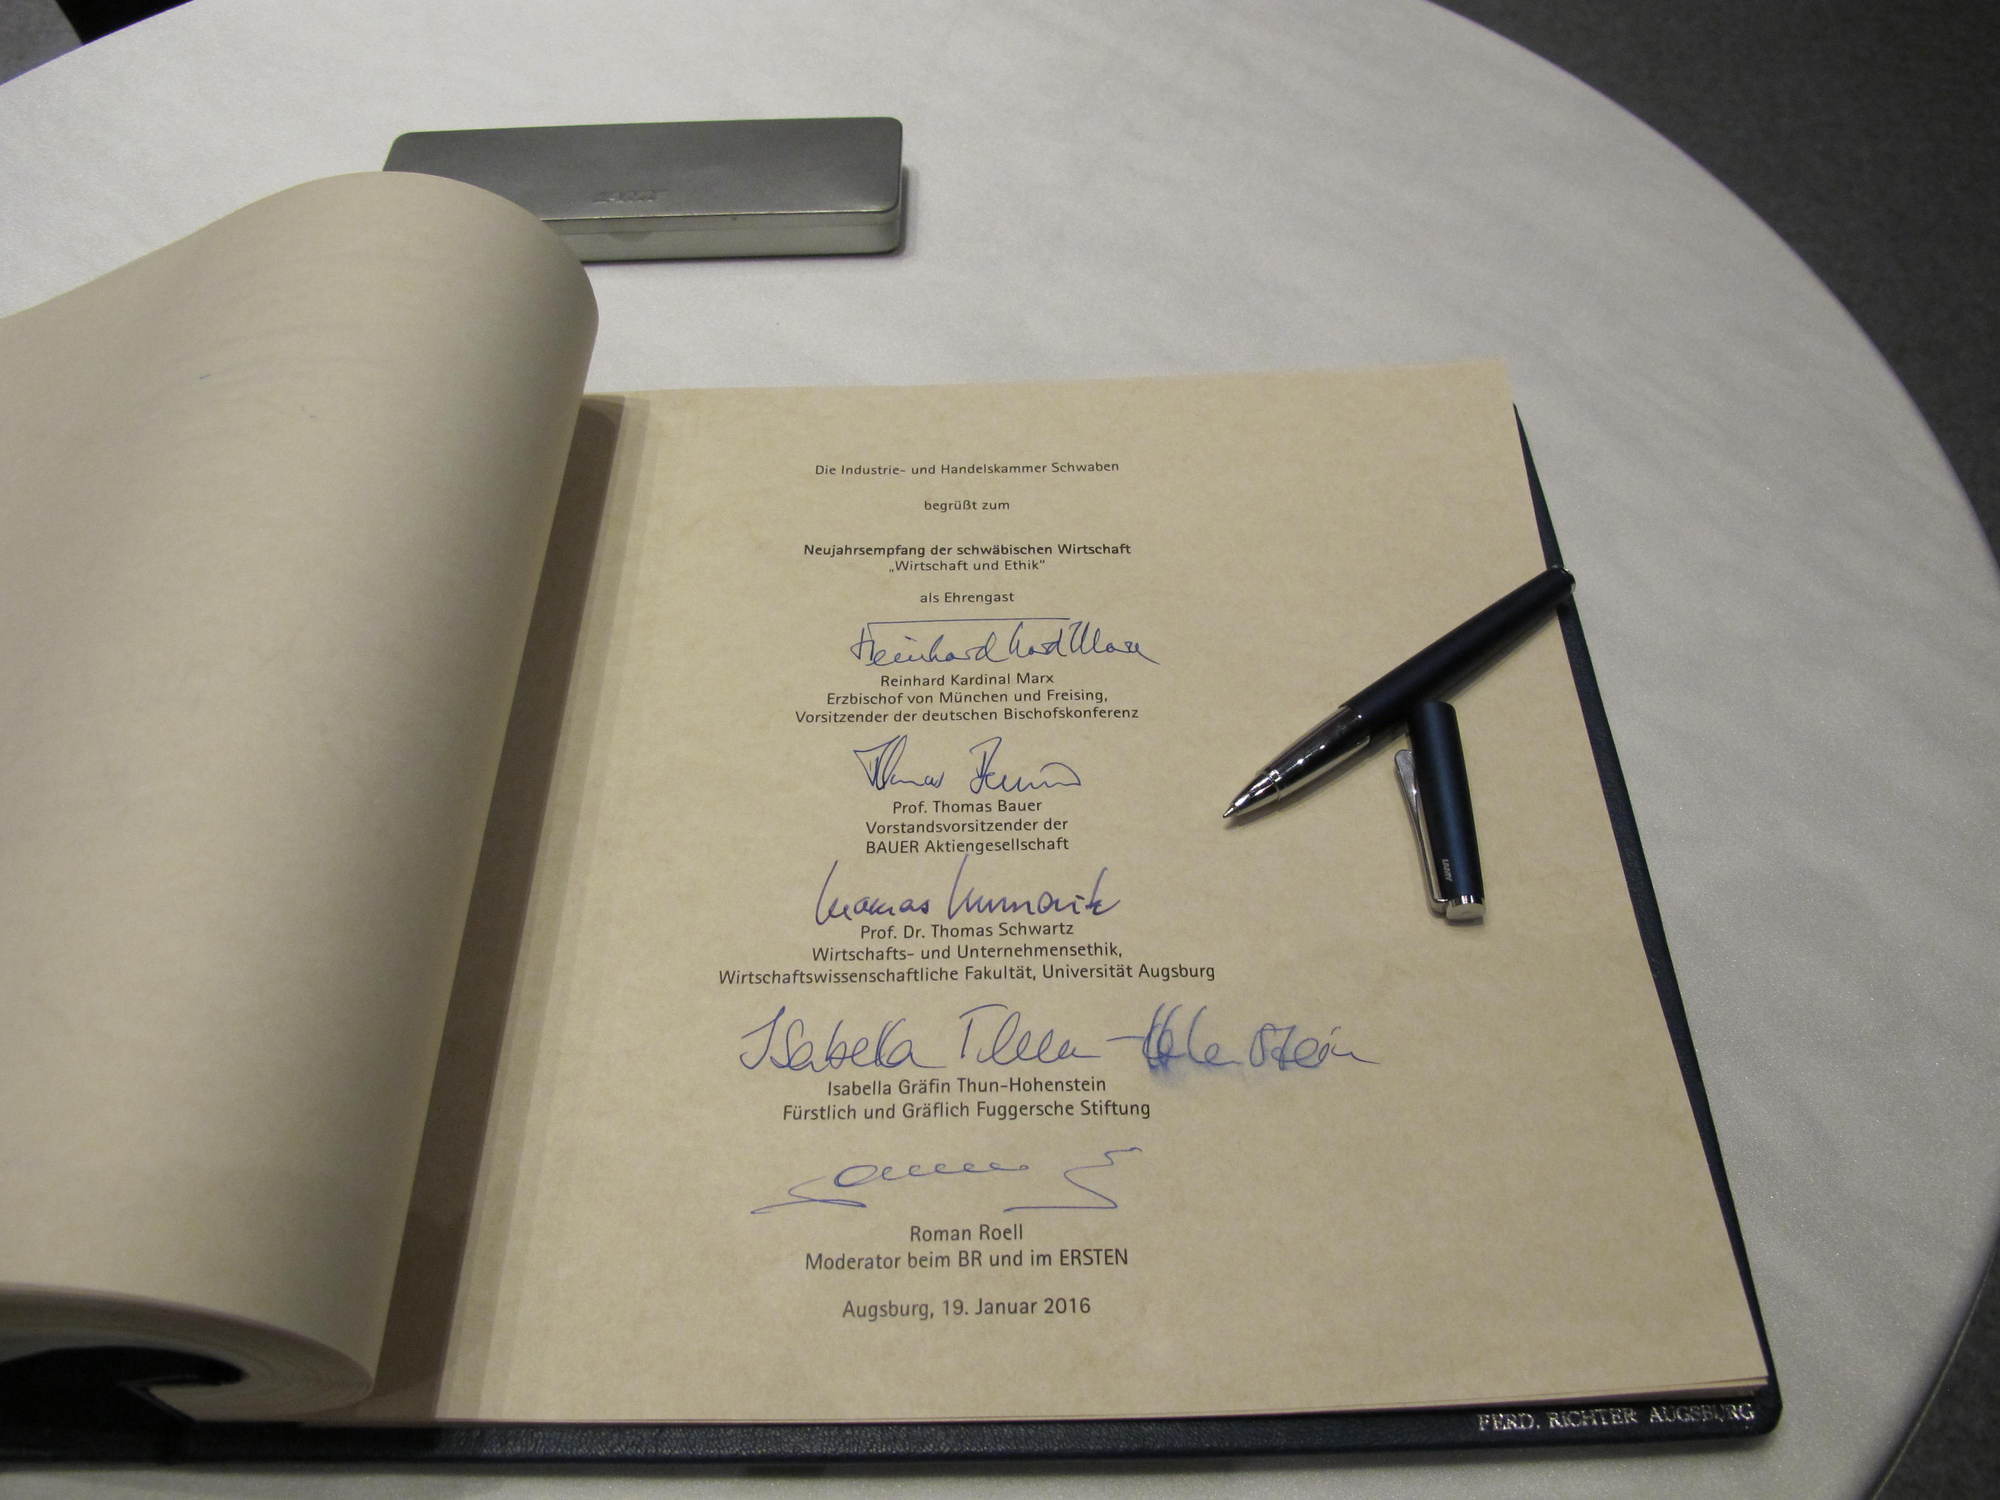 Die Industrie- und Handelskammer Schwaben
begrüßt zum
Neujahrsempfang der schwäbischen Wirtschaft
„Wirtschaft und Ethik“
als Ehrengast
Reinhard Kard Marx
Reinhard Kardinal Marx
Erzbischof von München und Freising,
Vorsitzender der deutschen Bischofskonferenz
Thomas Bauer
Prof. Thomas Bauer
Vorstandsvorsitzender der
BAUER Aktiengesellschaft
Thomas Schwartz
Prof. Dr. Thomas Schwartz
Wirtschafts- und Unternehmensethik,
Wirtschaftswissenschaftliche Fakultät, Universität Augsburg
Isabella Thun-Hohenstein
Isabella Gräfin Thun-Hohenstein
Fürstlich und Gräflich Fuggersche Stiftung
Roman Roell
Moderator beim BR und im ERSTEN
Augsburg, 19. Januar 2016
LAMY
LAMY
FERD. RICHTER AUGSBURG